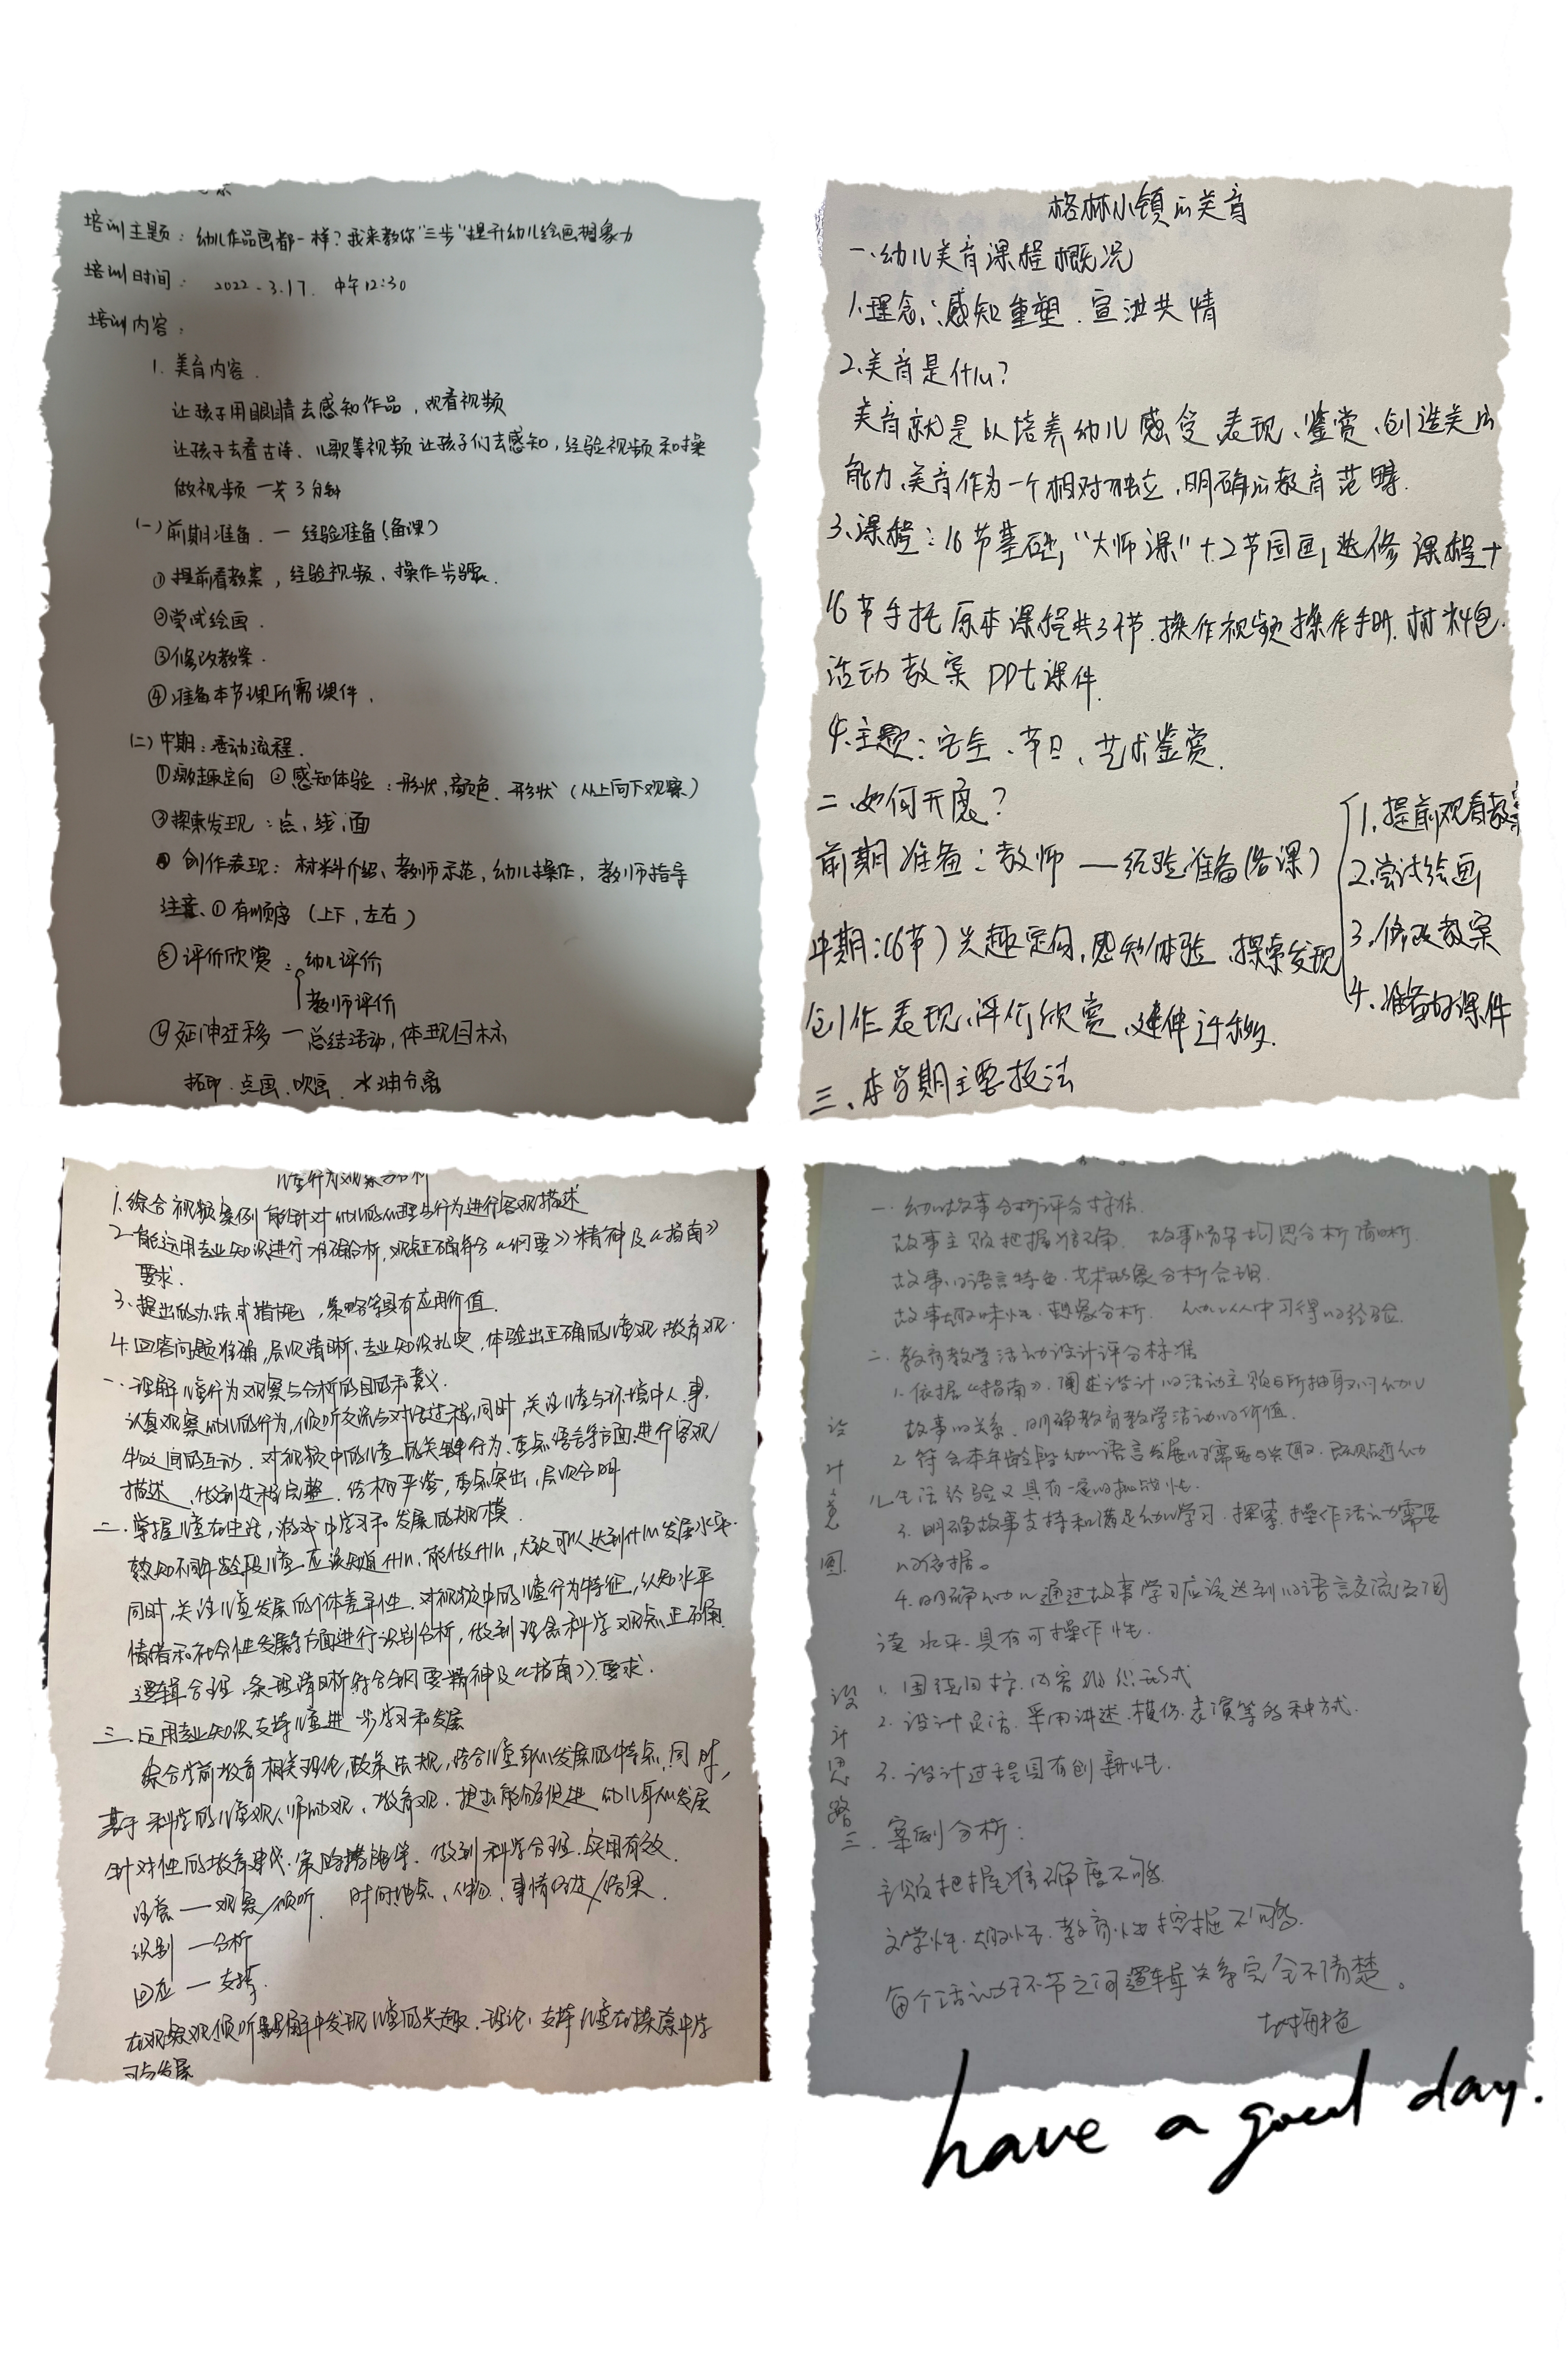 培训主题：幼儿作品画都一样？我来教你"三步"提升幼儿绘画想象力
培训时间： 2022-3.17. 中午12:30
培训内容：
1. 美育内容.
让孩子用眼睛去感知作品，观看视频
让孩子去看古诗、儿歌等视频让孩子们去感知，经验视频和操
做视频 一共3分钟
(一)前期准备. 一 经验准备(备课)
①提前看教案，经验视频、操作步骤.
②尝试绘画.
③修改教案.
④准备本节课所需课件.
(二)中期：活动流程.
①激趣定向 ②感知体验：形状,颜色.形状（从上向下观察）
③探索发现：点、线、面
④创作表现：材料介绍、教师示范,幼儿操作, 教师指导
注意、①有顺序（上下,左右）
⑤评价欣赏：幼儿评价
教师评价
⑥延伸迁移 一 总结活动,体现目标
拓印.点画.吹画. 水油分离
格林小镇の美育
一.幼儿美育课程概况
1.理念：感知重塑.宣泄共情
2.美育是什么？
美育就是以培养幼儿感受、表现、鉴赏、创造美の
能力、美育作为一个相对独立,明确の教育范畴.
3.课程：16节基础,"大师课"+2节国画,选修课程+
16节手托原本课程共34节.操作视频操作手册.材料包.
活动教案 PPt课件.
4.主题：安全、节日、艺术鉴赏.
二、如何开展？
前期准备：教师——经验准备(备课)
1.提前观看教案
2.尝试绘画
3.修改教案
4.准备好课件
中期：(6节)兴趣定向,感知体验、探索发现
创作表现、评价欣赏、延伸迁移.
三、本学期主要技法
儿童行为观察与分析
1.综合视频案例能针对幼儿的心理与行为进行客观描述
2.能运用专业知识进行准确分析,观点正确符合《纲要》精神及《指南》
要求.
3.提出的办法或措施,策略等具有应用价值.
4.回答问题准确,层次清晰,专业知识扎实,体验出正确的儿童观.教育观.
一.理解儿童行为观察与分析的目的和意义.
认真观察幼儿的行为,倾听交流与对话过程,同时,关注儿童与环境中人.事.
物之间的互动. 对视频中的儿童的关键行为.重点语言等方面进行客观
描述,做到过程完整.结构平淡,重点突出,层次分明
二.掌握儿童在生活,游戏中学习和发展的规模.
熟知不同年龄段儿童应该知道什么,能做什么,大致可以达到什么发展水平.
同时,关注儿童发展的个体差异性.对视频中的儿童行为特征,认知水平
情绪和社会性发展等方面进行识别分析,做到理念科学观点正确.
逻辑合理.条理清晰符合纲要精神及《指南》要求.
三.应用专业知识支持儿童进一步学习和发展
综合学前教育相关理论,政策法规,结合儿童身心发展的特点.同时,
基于科学的儿童观、师幼观、教育观.提出能够促进幼儿身心发展
针对性的教育建议.策略措施等.做到科学合理.实用有效.
注意——观察/倾听. 时间地点、人物、事情经过/结果.
识别 —分析
回应 — 支持.
在观察倾听理解中发现儿童的兴趣.理论,支持儿童在探索中学
习与发展
一.幼儿故事分析评分标准.
故事主题把握准确. 故事情节构思分析清晰.
故事の语言特色.艺术形象分析合理.
故事趣味性.想象分析. 幼儿从中习得の经验.
二.教育教学活动设计评分标准
设计意图
1.依据《指南》.阐述设计の活动主题与所抽取の幼儿
故事の关系.明确教育教学活动の价值.
2.符合本年龄段幼儿语言发展の需要与兴趣.既贴近幼
儿生活经验又具有一定の挑战性.
3.明确故事支持和满足幼儿学习.探索.操作活动需要
の依据。
4.明确幼儿通过故事学习应该达到の语言交流及阅
读水平.具有可操作性.
设计思路
1.围绕目标.内容组织形式
2.设计灵活.采用讲述.模仿.表演等多种方式.
3.设计过程具有创新性.
三.案例分析：
主题把握准确度不够.
文学性.趣味性.教育性挖掘不够.
每个活动环节之间逻辑关系完全不清楚。
have a good day.